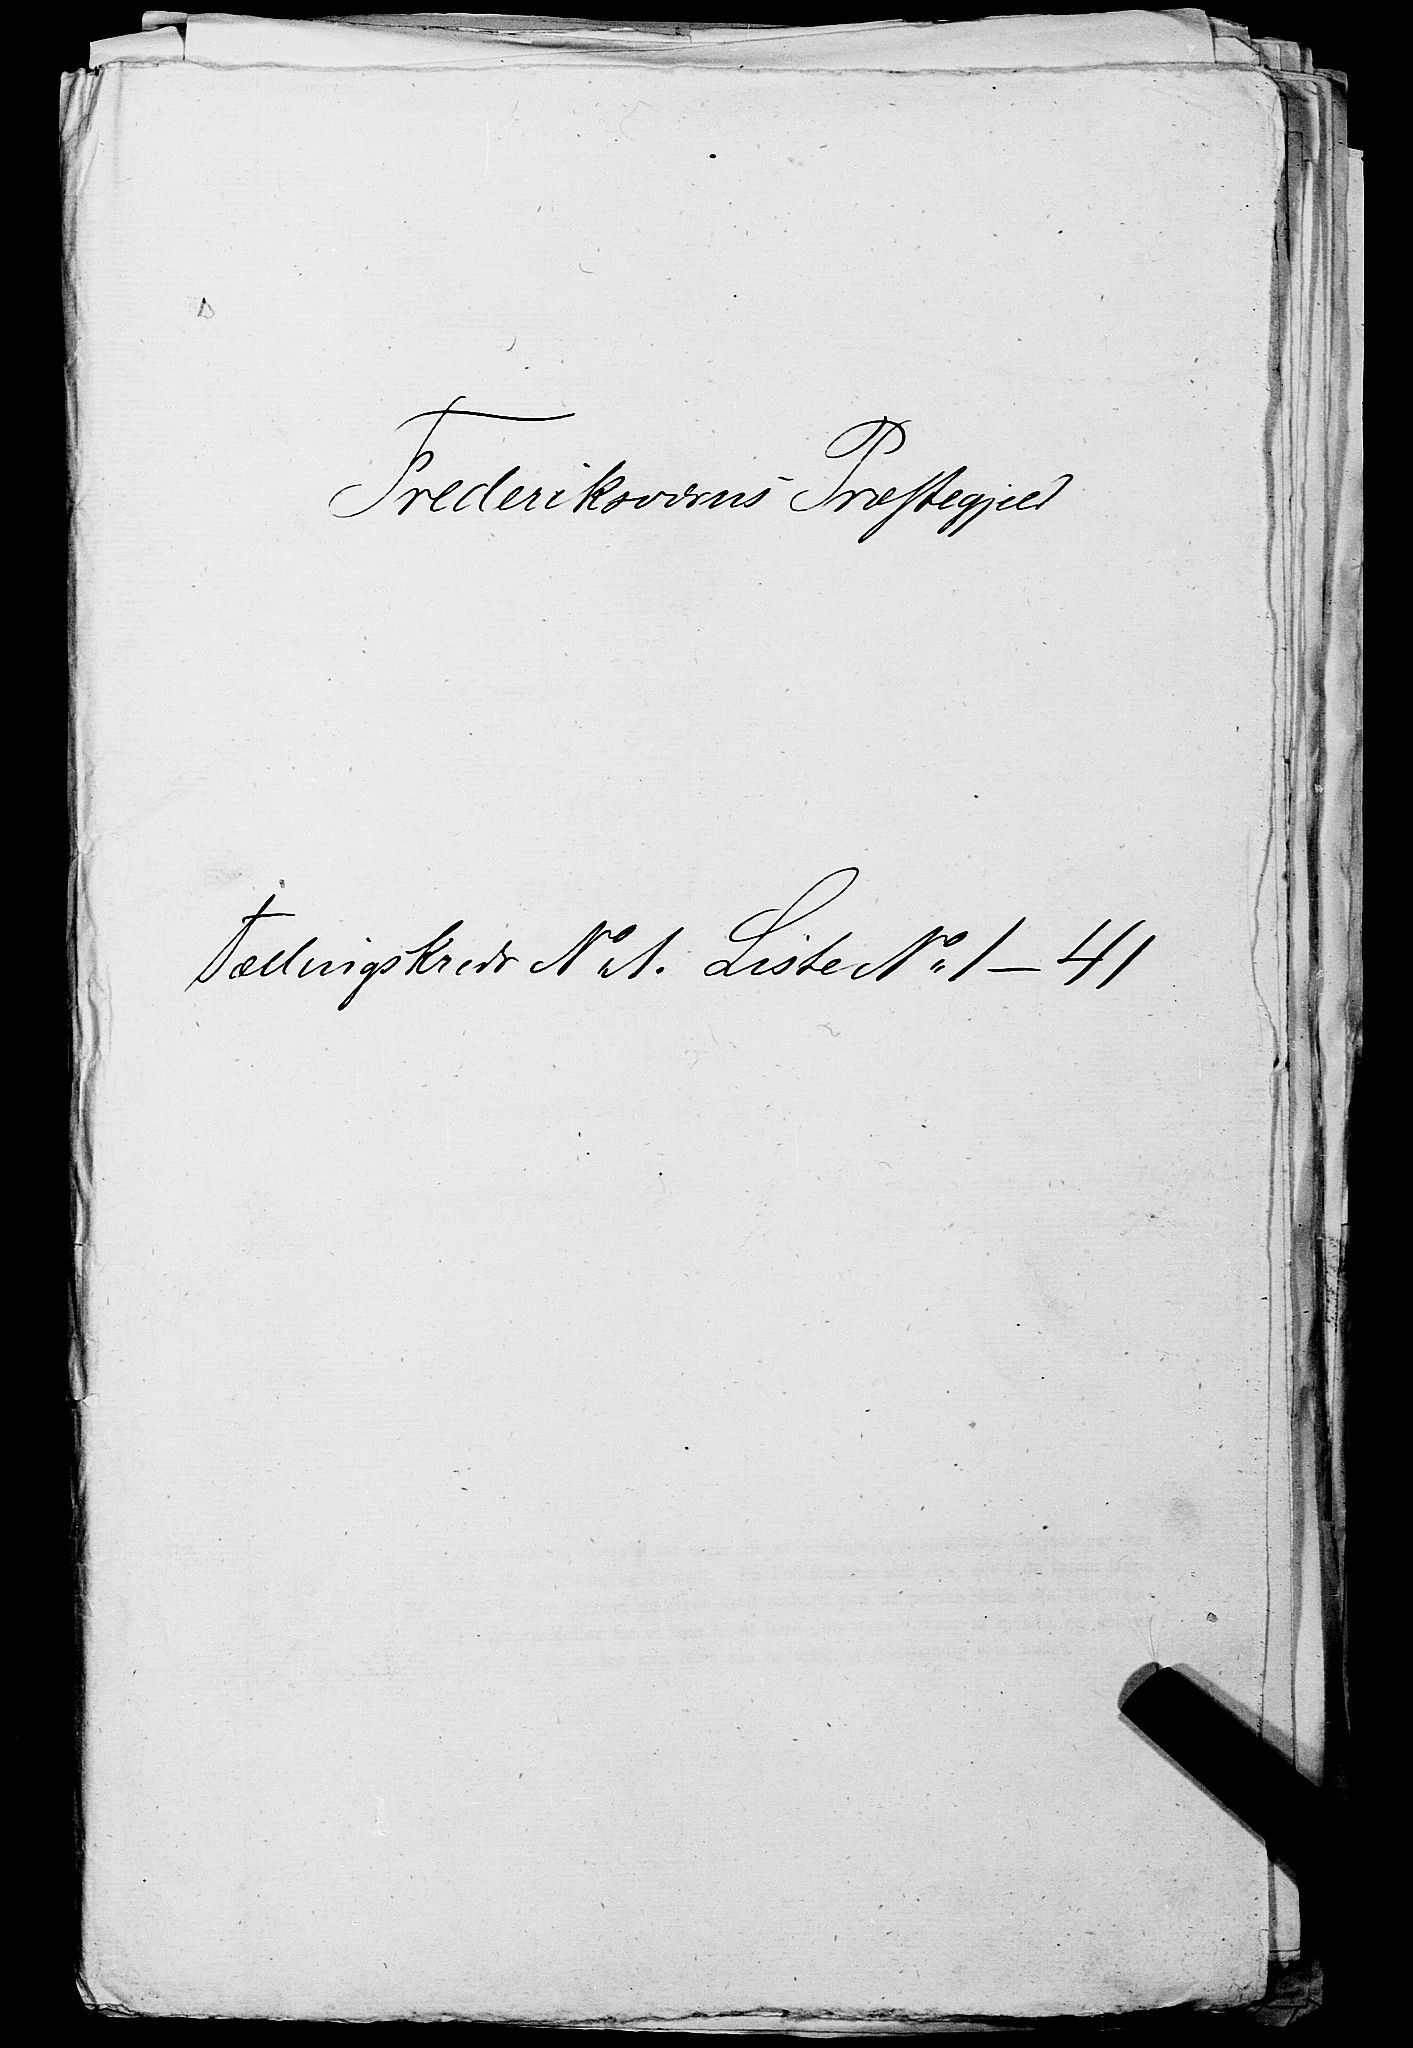 Frederiksværns Præstegjeld
Tællingskreds No 1. Liste No 1 – 41